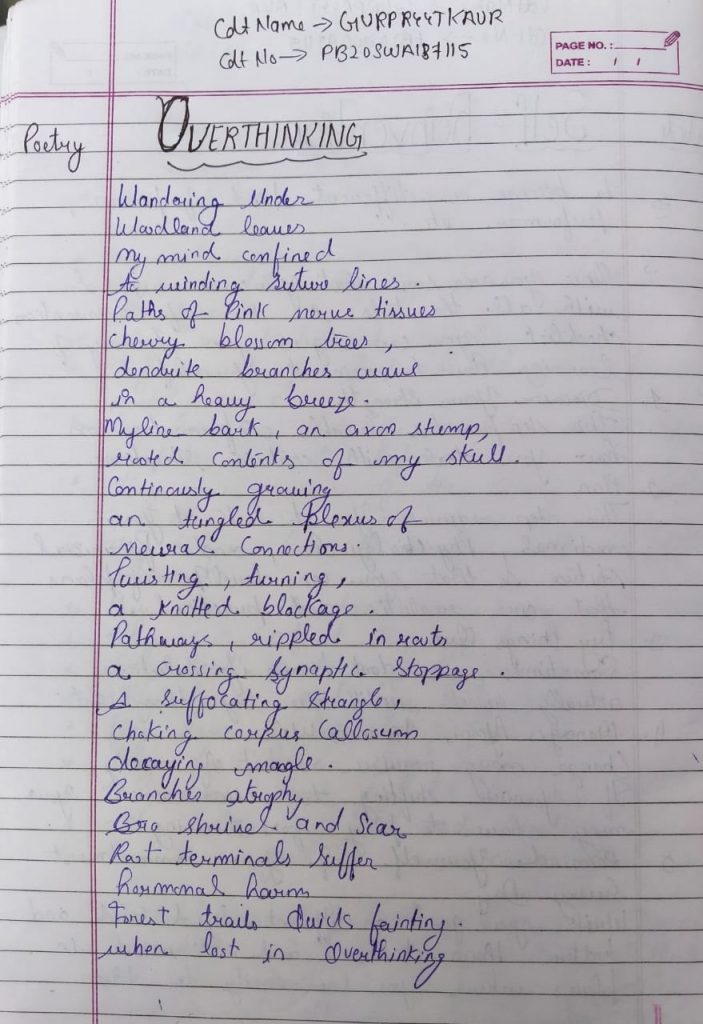 Cdt Name → GURPREETKAUR
Cdt No → PB20SWA187115
PAGE NO.:
DATE: / /
Poetry
OVERTHINKING
Wandering Under
Woodland leaves
my mind confined
to winding suture lines.
Paths of Pink nerve tissues
cherry blossom trees,
dendrite branches wave
in a heavy breeze.
Myline bark, an axon stump,
rooted contents of my skull.
Continously growing
an tungled Plexus of
neural Connections.
twisting, turning,
a knotted blockage.
Pathways, rippled in roots
a crossing Synaptic stoppage.
A suffocating strangle,
choking corpus Callosum
decaying mangle.
Branches atrophy
shrivel and Scar
Root terminals suffer
hormonal harm
Forest trails Quick fainting.
when lost in Overthinking